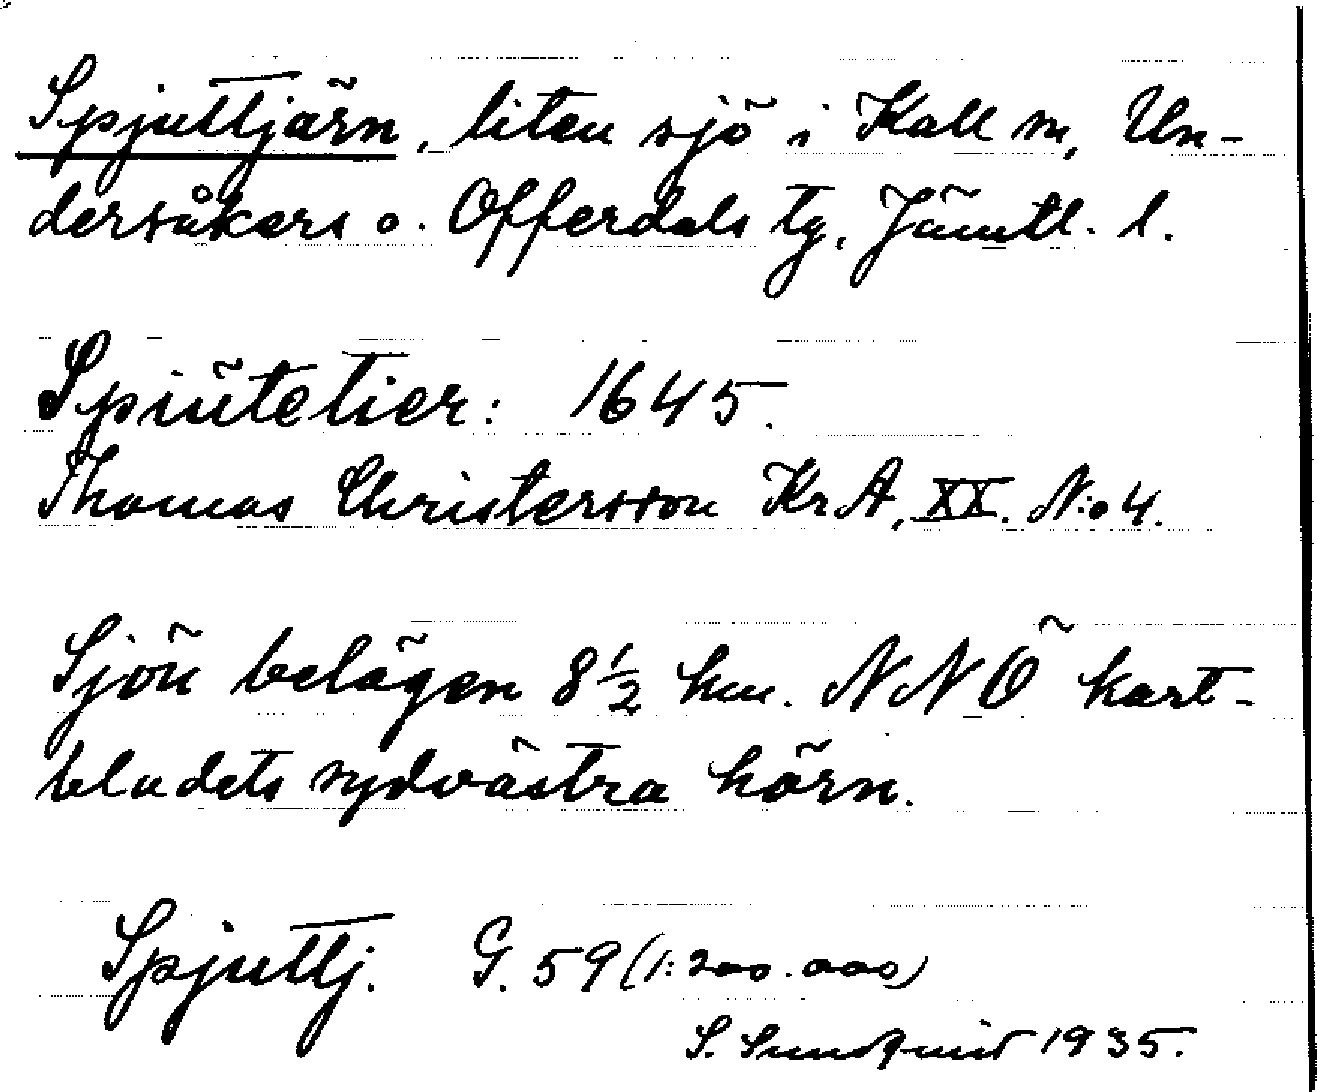 Spjuttjärn, liten sjö i Kall sn, Un-
dersåkers o. Offerdals tg, Jämtl. l.
Spiŭtetier: 1645.
Thomas Christersson KrA, XX. N:o 4.
Sjön belägen 8 1/2 km. NNÖ kart-
bladets sydvästra hörn.
Spjuttj. G. 59 (1:200.000)
S. Sundquist 1935.